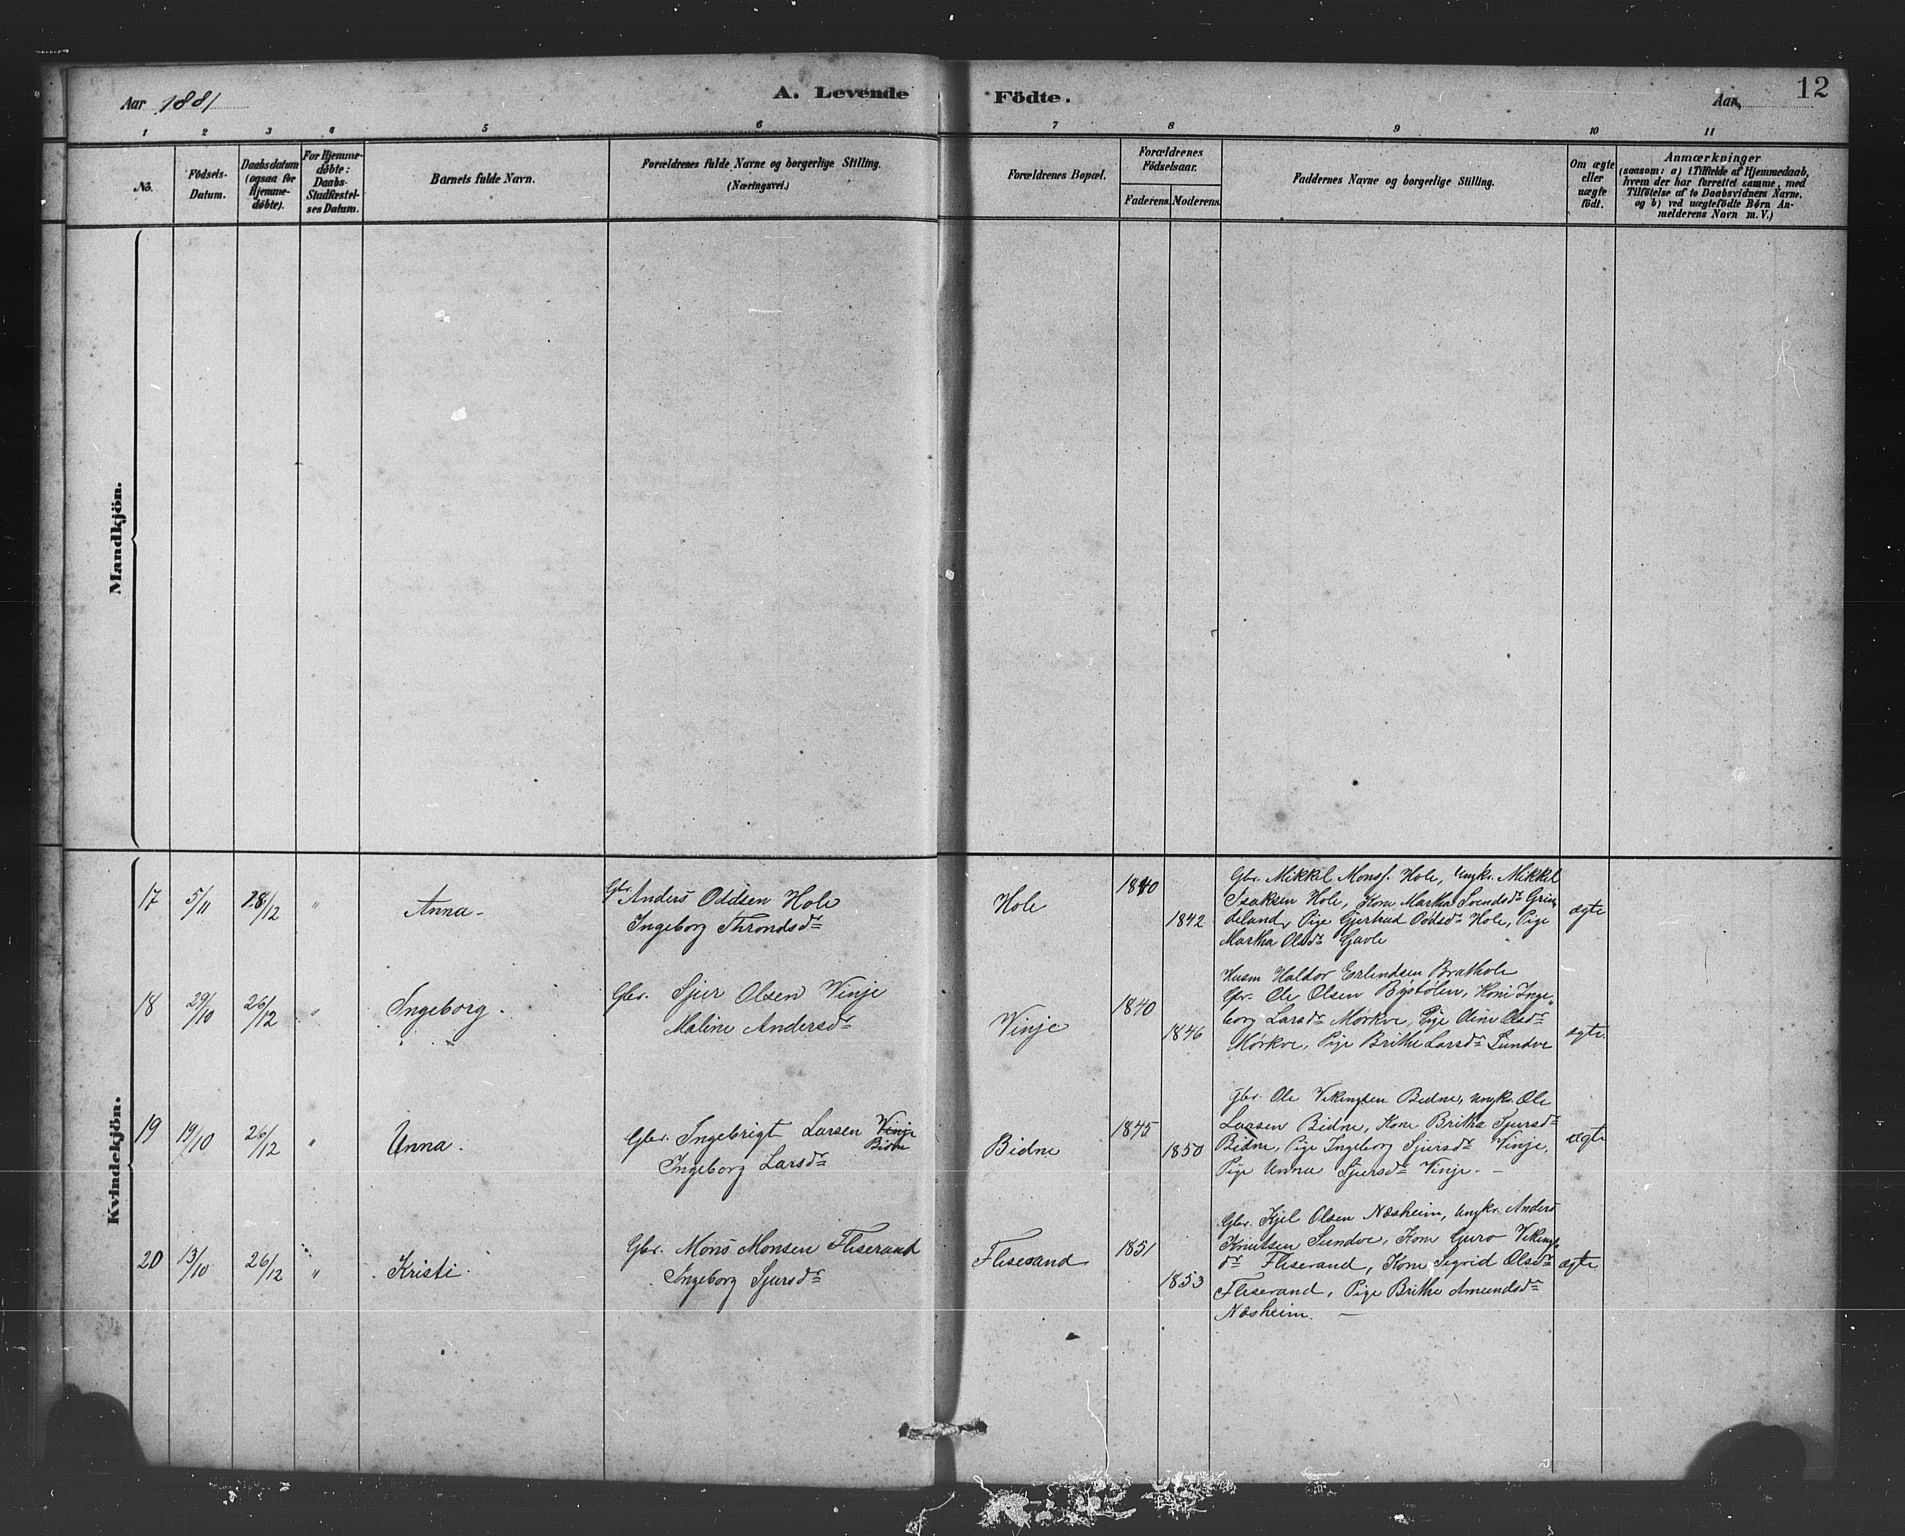 Aar 1881
A. Levende Födte.
Aar
12
1 2 3 4 5 6 7 8 9 10 11
No.
Födsels-
Datum.
Daabsdatum
(ogsaa for
Hjemme-
døbte).
For Hjemme-
døbte:
Daabs-
Stadfæstel-
ses Datum.
Barnets fulde Navn.
Forældrenes fulde Navne og borgerlige Stilling.
(Næringsvei.)
Forældrenes Bopæl.
Forældrenes
Födselsaar.
Faderens. Moderens.
Faddernes Navne og borgerlige Stilling.
Om ægte
eller
uægte
födt.
Anmærkninger
(saasom: a) i Tilfælde af Hjemmedaab,
hvem der har forrettet samme, med
Tilföielse af to Daabsvidners Navne,
og b) ved uægtefödte Börn An-
melderens Navn m.V.)
Mandkjön.
Kvindekjön.
17 5/11 28/12 " Anna.
Gbr. Anders Oddsen Hole
Ingeborg Throndsdr
Hole
1840
1842
Gbr. Mikkel Monss. Hole, Ungkr. Mikkel
Isaksen Hole, Kone Martha Svendsdr Grin
deland, Pige Gjertrud Oddsdr Hole, Pige
Martha Olsdr Gavle
ægte
18 29/10 26/12 " Ingeborg.
Gbr. Sjur Olsen Vinje
Maline Andersdr
Vinje
1840
1846
Husm Haldor Erlendsen Brathole
Gbr. Ole Olsen Bystølen, Kone Inge-
borg Larsdr Mørkve, Pige Oline Olsdr
Mørkve, Pige Brithe Larsdr Sundve
ægte.
19 19/10 26/12 " Unna.
Gbr. Ingebrigt Larsen Vinje
Bidne
Ingeborg Larsdr
Bidne
1845
1850
Gbr. Ole Vikingsen Bidne, Ungkr. Ole
Larsen Bidne, Kone Britha Sjursdr
Bidne, Pige Ingeborg Sjursdr Vinje,
Pige Unna Sjursdr Vinje. —
ægte
20 13/10 26/12 " Kristi.
Gbr. Mons Monsen Fliserand
Ingeborg Sjursdr
Fliserand
1851
1853
Gbr. Kjel Olsen Næsheim, Ungkr. Anders
Knutsen Sundve, Kone Guro Vikings
dr Fliserand, Kone Sigrid Olsdr
Fliserand, Pige Brithe Amundsdr
Næsheim. —
ægte